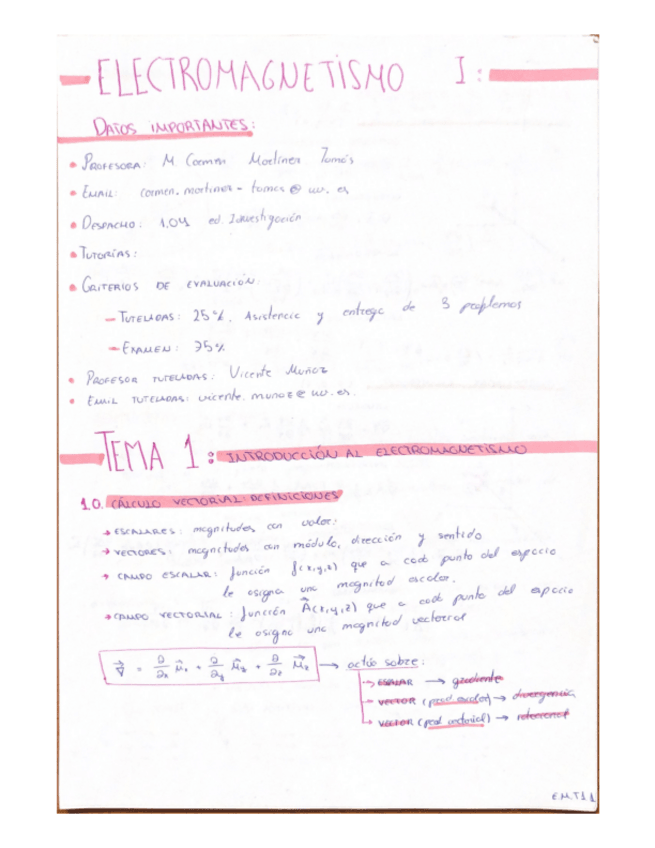 ELECTROMAGNETISMO I:
DATOS IMPORTANTES:
• PROFESORA: M. Carmen Martínez Tomás
• EMAIL: carmen.martinez-tomas@uv.es
• DESPACHO: 1.04 ed. Investigación
• TUTORÍAS:
• CRITERIOS DE EVALUACIÓN:
- TUTELADAS: 25%. Asistencia y entrega de 3 problemas
- EXAMEN: 75%
• PROFESOR TUTELADAS: Vicente Muñoz
• EMAIL TUTELADAS: vicente.munoz@uv.es.
TEMA 1: INTRODUCCIÓN AL ELECTROMAGNETISMO
1.0. CÁLCULO VECTORIAL: DEFINICIONES
→ ESCALARES: magnitudes con valor.
→ VECTORES: magnitudes con módulo, dirección y sentido
→ CAMPO ESCALAR: función f(x,y,z) que a cada punto del espacio
le asigna una magnitud escalar.
→ CAMPO VECTORIAL: función A⃗(x,y,z) que a cada punto del espacio
le asigna una magnitud vectorial
∇⃗ = ∂/∂x u⃗x + ∂/∂y u⃗y + ∂/∂z u⃗z → actúa sobre:
→ ESCALAR → gradiente
→ VECTOR (prod. escalar) → divergencia
→ VECTOR (prod. vectorial) → rotacional
E.M.T1 1